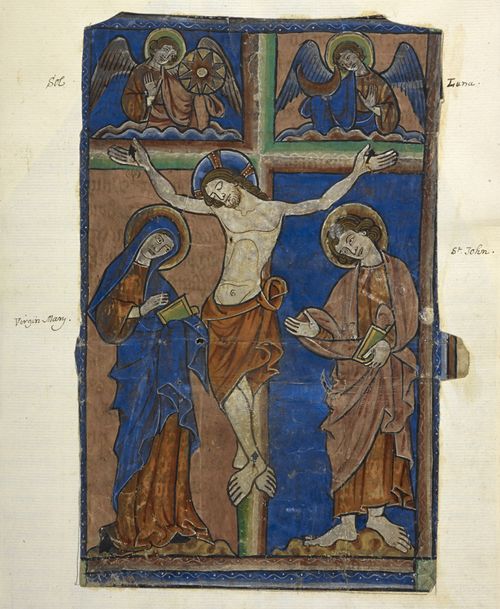 Sol
Luna.
St. John.
Virgin Mary.